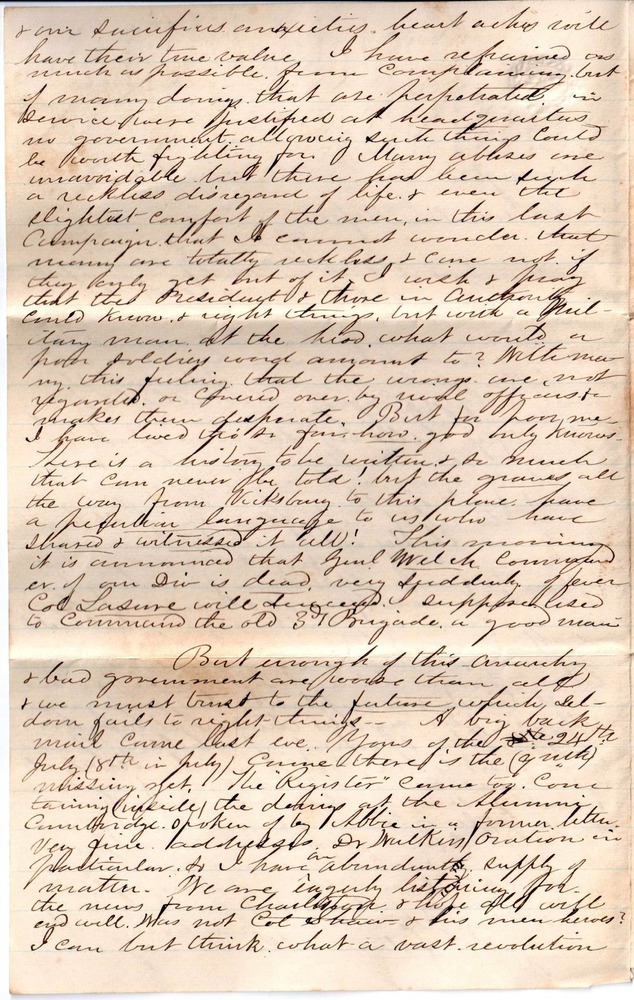 & our sacrifices anxieties, heart aches will
have their true value. I have refrained as
much as possible, from complaining, but
if many doings that are perpetrated in
service were justified at headquarters
no government allowing such things could
be worth fighting for. Many abuses are
unavoidable but there has been such
a reckless disregard of life & even the
slightest comfort of the men, in this last
Campaign, that I cannot wonder that
many are totally reckless, & care not if
they only get out of it. I wish & pray
that the President & those in authority
could know, & right things, but with a Mili-
tary man at the head, what would a
poor soldiers word amount to? With ma-
ny, this feeling that the wrongs are not
regarded, or covered over by officers
makes them desperate. But for poor me
I have lived thro so far, how, god only knows.
There is a history to be written & so much
that can never be told, but the graves all
the way from Vicksburg to this place, have
a peculiar language to us who have
shared & witnessed it all! This morning
it is announced that Genl Welch Command
er of our Div is dead, very suddenly of fever
Col Lasure will succeed I suppose, used
to Command the old 3d Brigade, a good man
But enough of this. Anarchy
& bad government are worse than all
& we must trust to the future which sel-
dom fails to right things -- A big back
mail came last eve. Yours of the 24th
July (8th in July) came, there is the
missing yet. The "Register" came too. Con
taining (inside) the doings at the Alumni
Cambridge, spoken of by Abbie in a former letter.
Very fine addresses, Dr Walkers Oration in
particular. So I have an abundant supply of
matter. We are eagerly listening for
the news from Charleston & hope all will
end will. Was not Col Shaw & his men heroes?
I can but think, what a vast revolution